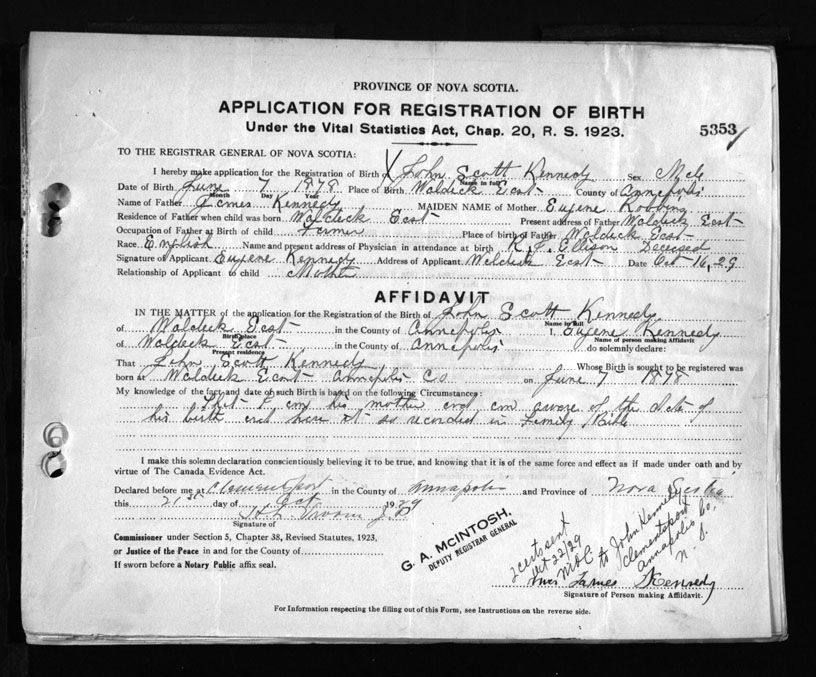 PROVINCE OF NOVA SCOTIA.
APPLICATION FOR REGISTRATION OF BIRTH
Under the Vital Statistics Act, Chap. 20, R. S. 1923.
5353
TO THE REGISTRAR GENERAL OF NOVA SCOTIA:
I hereby make application for the Registration of Birth of John Scott Kennedy Sex Male
Name in full
Date of Birth June 7 1878 Place of Birth Waldeck East County of Annapolis
Month Day Year
Name of Father James Kennedy MAIDEN NAME of Mother Eugene Robbins
Residence of Father when child was born Waldeck East Present address of Father Waldeck East
Occupation of Father at Birth of child Farmer Place of birth of Father Waldeck East
Race English Name and present address of Physician in attendance at birth R. F. Ellison Deceased
Signature of Applicant Eugene Kennedy Address of Applicant Waldeck East Date Oct 16, 29
Relationship of Applicant to child Mother
AFFIDAVIT
IN THE MATTER of the application for the Registration of the Birth of John Scott Kennedy
Name in full
of Waldeck East in the County of Annapolis I, Eugene Kennedy
Birth place Name of person making Affidavit
of Waldeck East in the County of Annapolis do solemnly declare:
Present residence
That John Scott Kennedy Whose Birth is sought to be registered was
born at Waldeck East Annapolis Co on June 7 1878
My knowledge of the fact and date of such Birth is based on the following Circumstances:
That I am his mother and am aware of the date of
his birth and have it so recorded in Family Bible
I make this solemn declaration conscientiously believing it to be true, and knowing that it is of the same force and effect as if made under oath and by
virtue of The Canada Evidence Act.
Declared before me at Clementsport in the County of Annapolis and Province of Nova Scotia
this 21st day of Oct 1929
H. L. Vroom J. P.
Signature of
Commissioner under Section 5, Chapter 38, Revised Statutes, 1923,
or Justice of the Peace in and for the County of
If sworn before a Notary Public affix seal.
G. A. McINTOSH,
DEPUTY REGISTRAR GENERAL
2 certs sent
Oct 22/29
to John Kennedy
Clementsport
Annapolis Co.
N. S.
Mrs James Kennedy
Signature of Person making Affidavit.
For Information respecting the filling out of this Form, see Instructions on the reverse side.